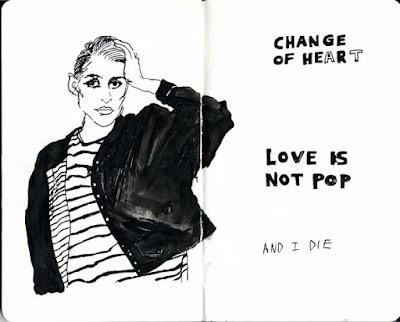 CHANGE
OF HEART
LOVE IS
NOT POP
AND I DIE